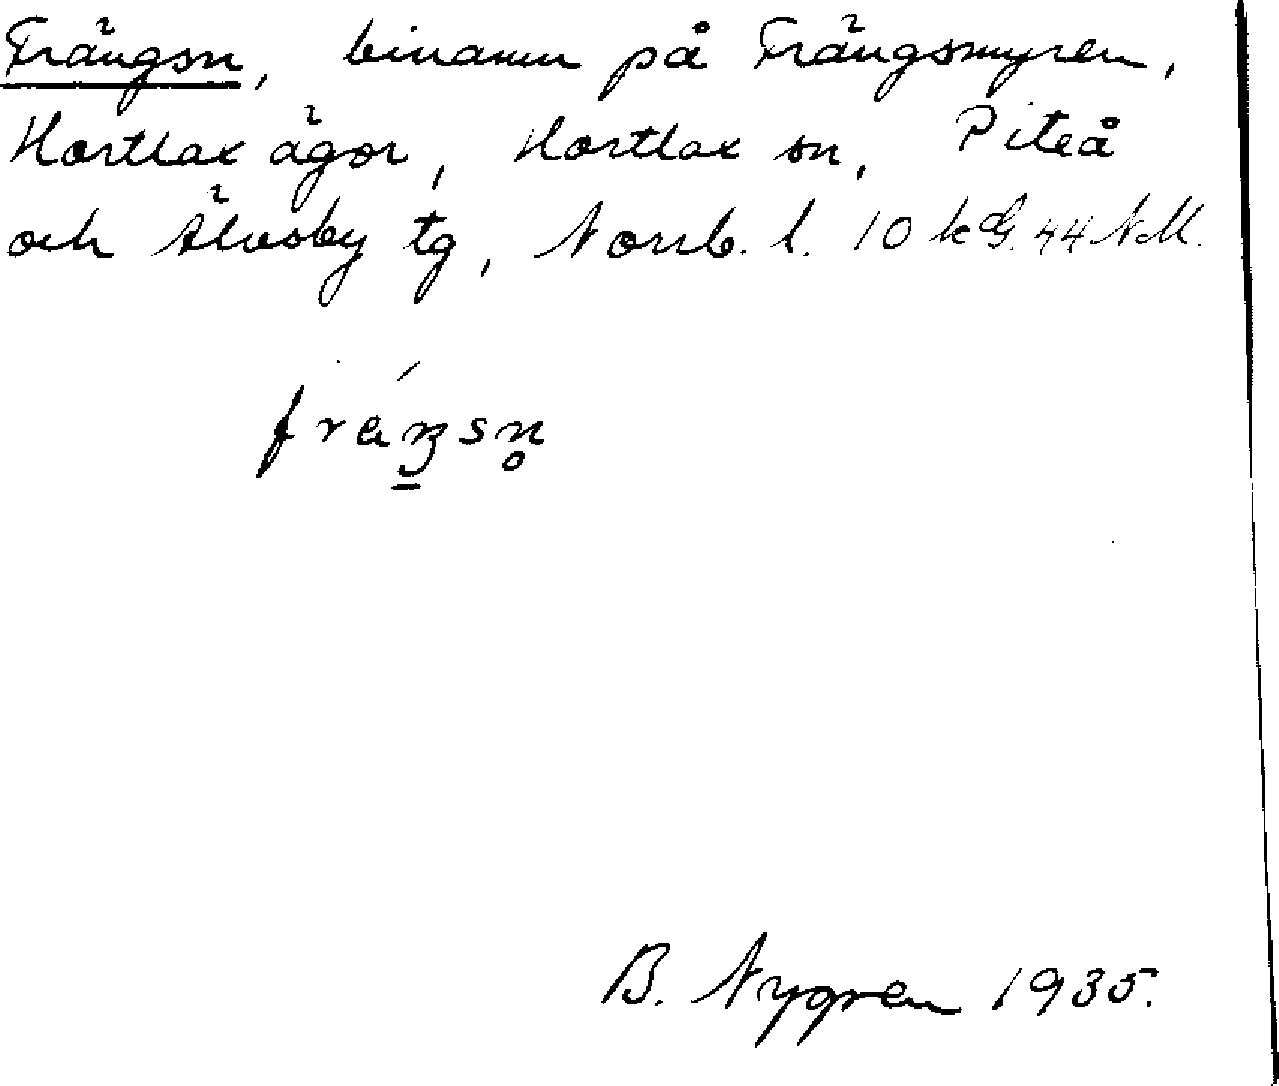 Frängsn, binamn på Frängsmyren,
Hortlax ägor, Hortlax sn, Piteå
och Älvsby tg, Norrb. l. 10 k G. 44 NM.
fräŋsn̥
B. Nygren 1935.